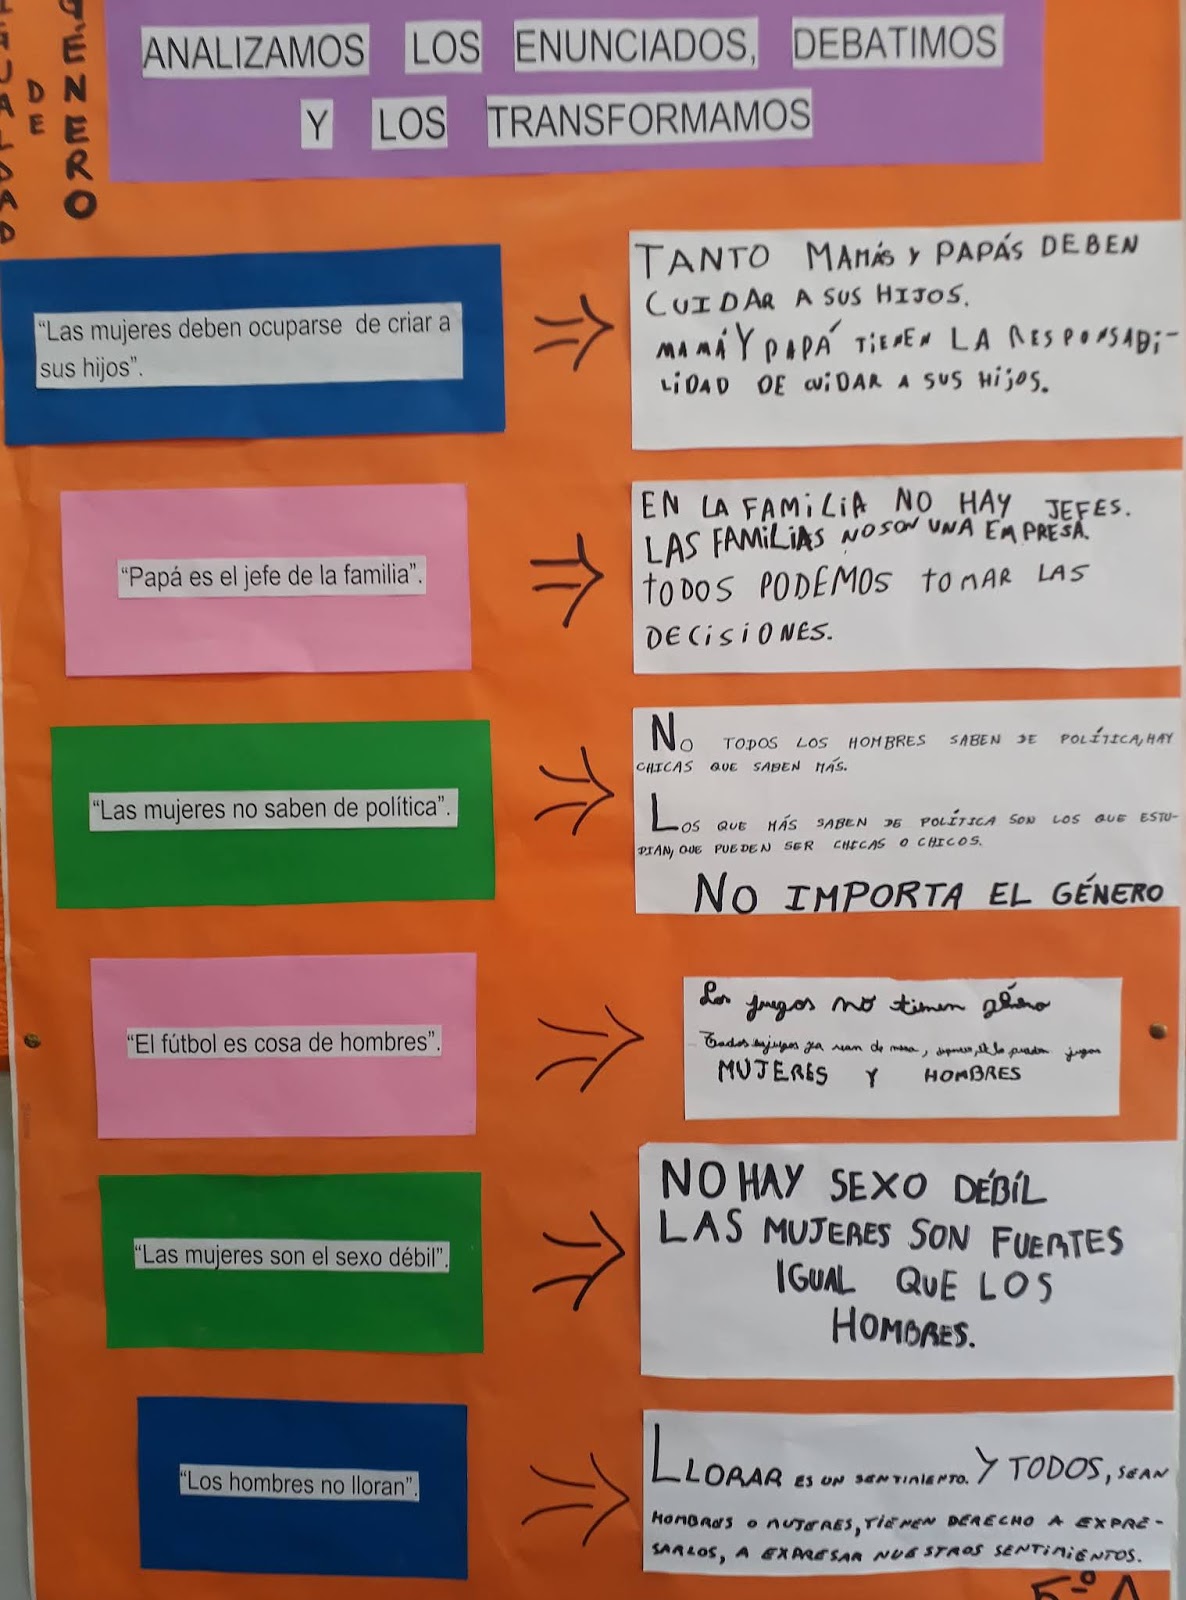 IGUALDAD
DE
GÉNERO
ANALIZAMOS LOS ENUNCIADOS, DEBATIMOS
Y LOS TRANSFORMAMOS
“Las mujeres deben ocuparse de criar a
sus hijos”.
TANTO MAMÁS Y PAPÁS DEBEN
CUIDAR A SUS HIJOS.
MAMÁ Y PAPÁ TIENEN LA RESPONSABI-
LIDAD DE CUIDAR A SUS HIJOS.
“Papá es el jefe de la familia”.
EN LA FAMILIA NO HAY JEFES.
LAS FAMILIAS NO SON UNA EMPRESA.
TODOS PODEMOS TOMAR LAS
DECISIONES.
“Las mujeres no saben de política”.
NO TODOS LOS HOMBRES SABEN DE POLÍTICA, HAY
CHICAS QUE SABEN MÁS.
LOS QUE MÁS SABEN DE POLÍTICA SON LOS QUE ESTU-
DIAN, QUE PUEDEN SER CHICAS O CHICOS.
NO IMPORTA EL GÉNERO
“El fútbol es cosa de hombres”.
Los juegos no tienen
ya sean de mesa,
MUJERES Y HOMBRES
“Las mujeres son el sexo débil”.
NO HAY SEXO DÉBÍL
LAS MUJERES SON FUERTES
IGUAL QUE LOS
HOMBRES.
“Los hombres no lloran”.
LLORAR ES UN SENTIMIENTO. Y TODOS, SEAN
HOMBRES O MUJERES, TIENEN DERECHO A EXPRE-
SARLOS, A EXPRESAR NUESTROS SENTIMIENTOS.
5º A